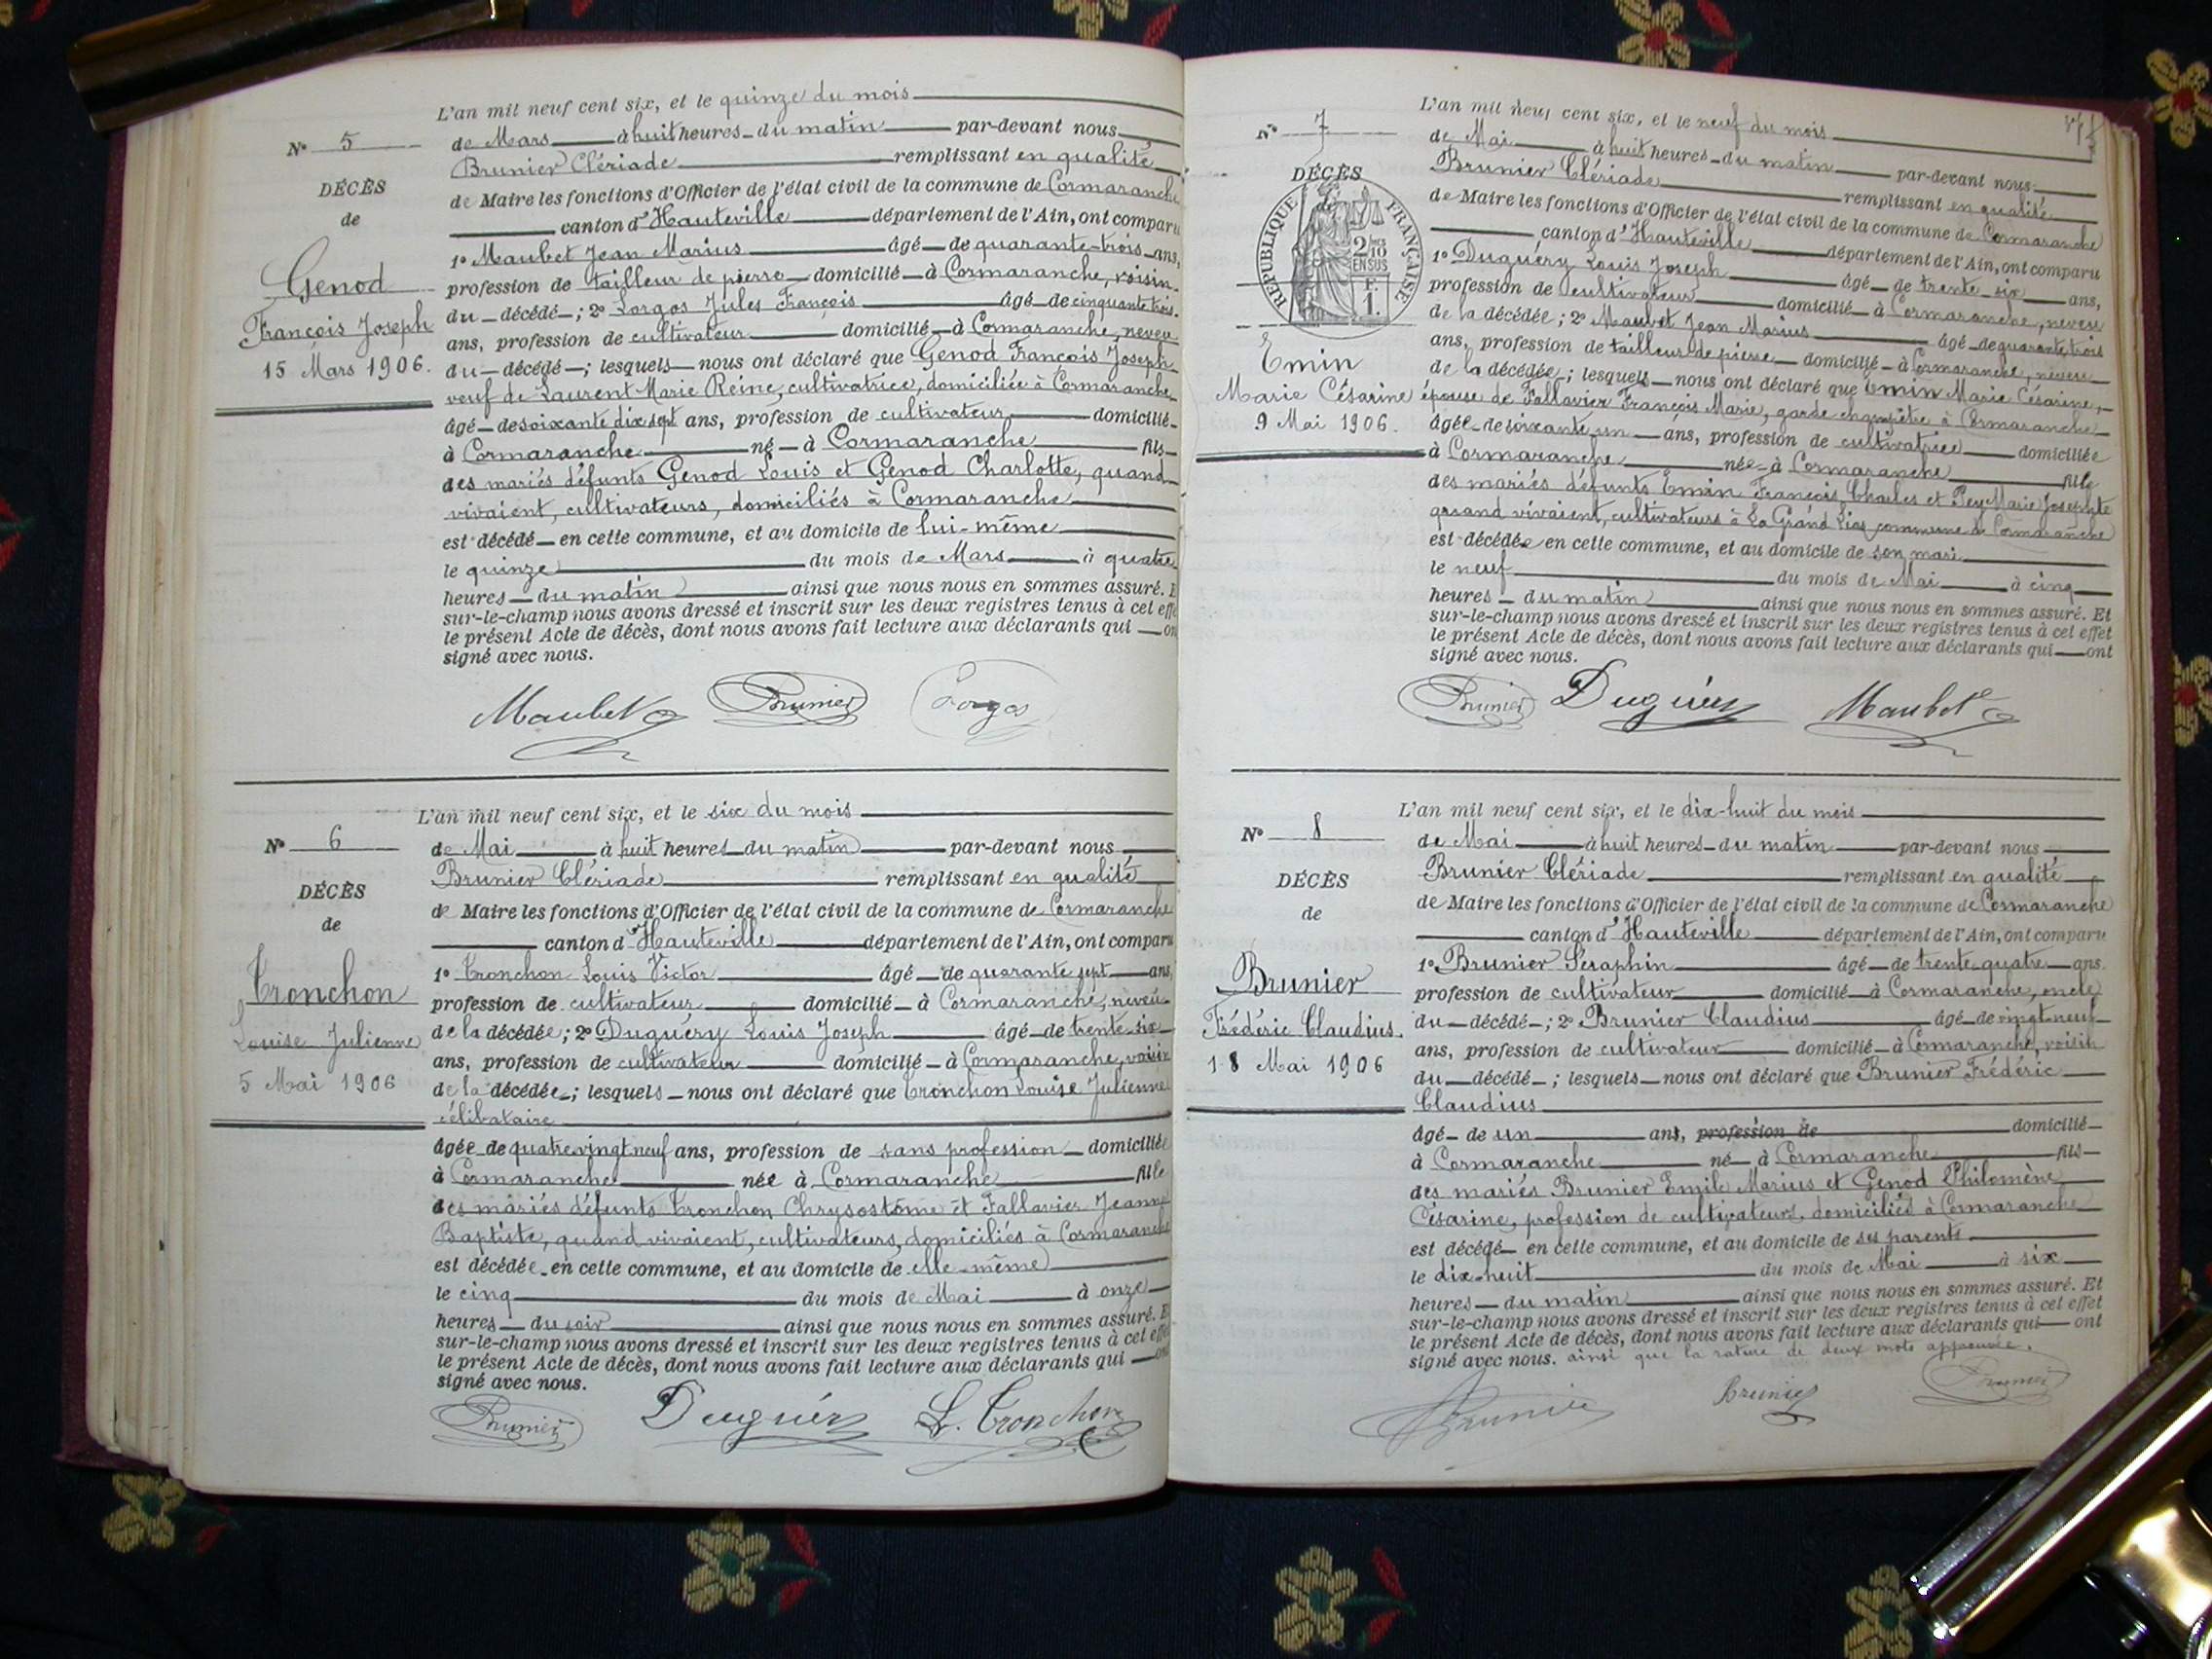 L'an mil neuf cent six, et le quinze du mois
N° 5
de Mars à huit heures du matin par-devant nous
Brunier Clériade remplissant en qualité
DÉCÈS
de Maire les fonctions d'Officier de l'état civil de la commune de Cormaranche
de
canton d'Hauteville département de l'Ain, ont comparu
1° Maubet Jean Marius âgé de quarante-trois ans,
Genod
profession de tailleur de pierre domicilié à Cormaranche, voisin
François Joseph
du décédé ; 2° Lorgos Jules François âgé de cinquante trois
ans, profession de cultivateur domicilié à Cormaranche, neveu
15 Mars 1906.
du décédé ; lesquels nous ont déclaré que Genod François Joseph
veuf de Laurent Marie Reine, cultivatrice, domiciliée à Cormaranche
âgé de soixante dix sept ans, profession de cultivateur domicilié
à Cormaranche né à Cormaranche fils
des mariés défunts Genod Louis et Genod Charlotte, quand
vivaient, cultivateurs, domiciliés à Cormaranche
est décédé en cette commune, et au domicile de lui-même
le quinze du mois de Mars à quatre
heures du matin ainsi que nous nous en sommes assuré. E
sur-le-champ nous avons dressé et inscrit sur les deux registres tenus à cet effe
le présent Acte de décès, dont nous avons fait lecture aux déclarants qui on
signé avec nous.
Maubet Brunier Lorgos
L'an mil neuf cent six, et le six du mois
N° 6
de Mai à huit heures du matin par-devant nous
Brunier Clériade remplissant en qualité
DÉCÈS
de Maire les fonctions d'Officier de l'état civil de la commune de Cormaranche
de
canton d'Hauteville département de l'Ain, ont comparu
1° Tronchon Louis Victor âgé de quarante sept ans,
Tronchon
profession de cultivateur domicilié à Cormaranche, neveu
Louise Julienne
de la décédée ; 2° Duguéry Louis Joseph âgé de trente-six
ans, profession de cultivateur domicilié à Cormaranche, voisin
5 Mai 1906
de la décédée ; lesquels nous ont déclaré que Tronchon Louise Julienne
célibataire
âgée de quatre vingt neuf ans, profession de sans profession domiciliée
à Cormaranche née à Cormaranche fille
des mariés défunts Tronchon Chrysostôme et Fallavier Jeanne
Baptiste, quand vivaient, cultivateurs, domiciliés à Cormaranche
est décédée en cette commune, et au domicile de elle-même
le cinq du mois de Mai à onze
heures du soir ainsi que nous nous en sommes assuré. E
sur-le-champ nous avons dressé et inscrit sur les deux registres tenus à cet effe
le présent Acte de décès, dont nous avons fait lecture aux déclarants qui on
signé avec nous.
Brunier Duguéry L. Tronchon
L'an mil neuf cent six, et le neuf du mois
N° 7
de Mai à huit heures du matin par-devant nous
DÉCÈS
Brunier Clériade remplissant en qualité
de Maire les fonctions d'Officier de l'état civil de la commune de Cormaranche
RÉPUBLIQUE FRANÇAISE
2/10 EN SUS
F. 1.
canton d'Hauteville département de l'Ain, ont comparu
1° Duguéry Louis Joseph âgé de trente-six ans,
profession de cultivateur domicilié à Cormaranche, neveu
de la décédée ; 2° Maubet Jean Marius âgé de quarante trois
ans, profession de tailleur de pierre domicilié à Cormaranche, neveu
Emin
de la décédée ; lesquels nous ont déclaré que Emin Marie Césarine,
Marie Césarine
épouse de Fallavier François Marie, garde champêtre à Cormaranche
9 Mai 1906.
âgée de soixante un ans, profession de cultivatrice domiciliée
à Cormaranche née à Cormaranche fille
des mariés défunts Emin François Charles et Pey Marie Josephte
quand vivaient, cultivateurs à La Grand commune de Cormaranche
est décédée en cette commune, et au domicile de son mari
le neuf du mois de Mai à cinq
heures du matin ainsi que nous nous en sommes assuré. Et
sur-le-champ nous avons dressé et inscrit sur les deux registres tenus à cet effet
le présent Acte de décès, dont nous avons fait lecture aux déclarants qui ont
signé avec nous.
Brunier Duguéry Maubet
L'an mil neuf cent six, et le dix-huit du mois
N° 8
de Mai à huit heures du matin par-devant nous
Brunier Clériade remplissant en qualité
DÉCÈS
de Maire les fonctions d'Officier de l'état civil de la commune de Cormaranche
de
canton d'Hauteville département de l'Ain, ont comparu
1° Brunier Séraphin âgé de trente quatre ans.
Brunier
profession de cultivateur domicilié à Cormaranche, oncle
Frédéric Claudius.
du décédé ; 2° Brunier Claudius âgé de vingt neuf
ans, profession de cultivateur domicilié à Cormaranche, voisin
18 Mai 1906
du décédé ; lesquels nous ont déclaré que Brunier Frédéric
Claudius
âgé de un ans, profession de domicilié
à Cormaranche né à Cormaranche fils
des mariés Brunier Emile Marius et Genod Philomène
Césarine, profession de cultivateurs, domiciliés à Cormaranche
est décédé en cette commune, et au domicile de ses parents
le dix-huit du mois de Mai à six
heures du matin ainsi que nous nous en sommes assuré. Et
sur-le-champ nous avons dressé et inscrit sur les deux registres tenus à cet effet
le présent Acte de décès, dont nous avons fait lecture aux déclarants qui ont
signé avec nous. ainsi que la rature de deux mots approuvée.
Brunier Brunier Brunier